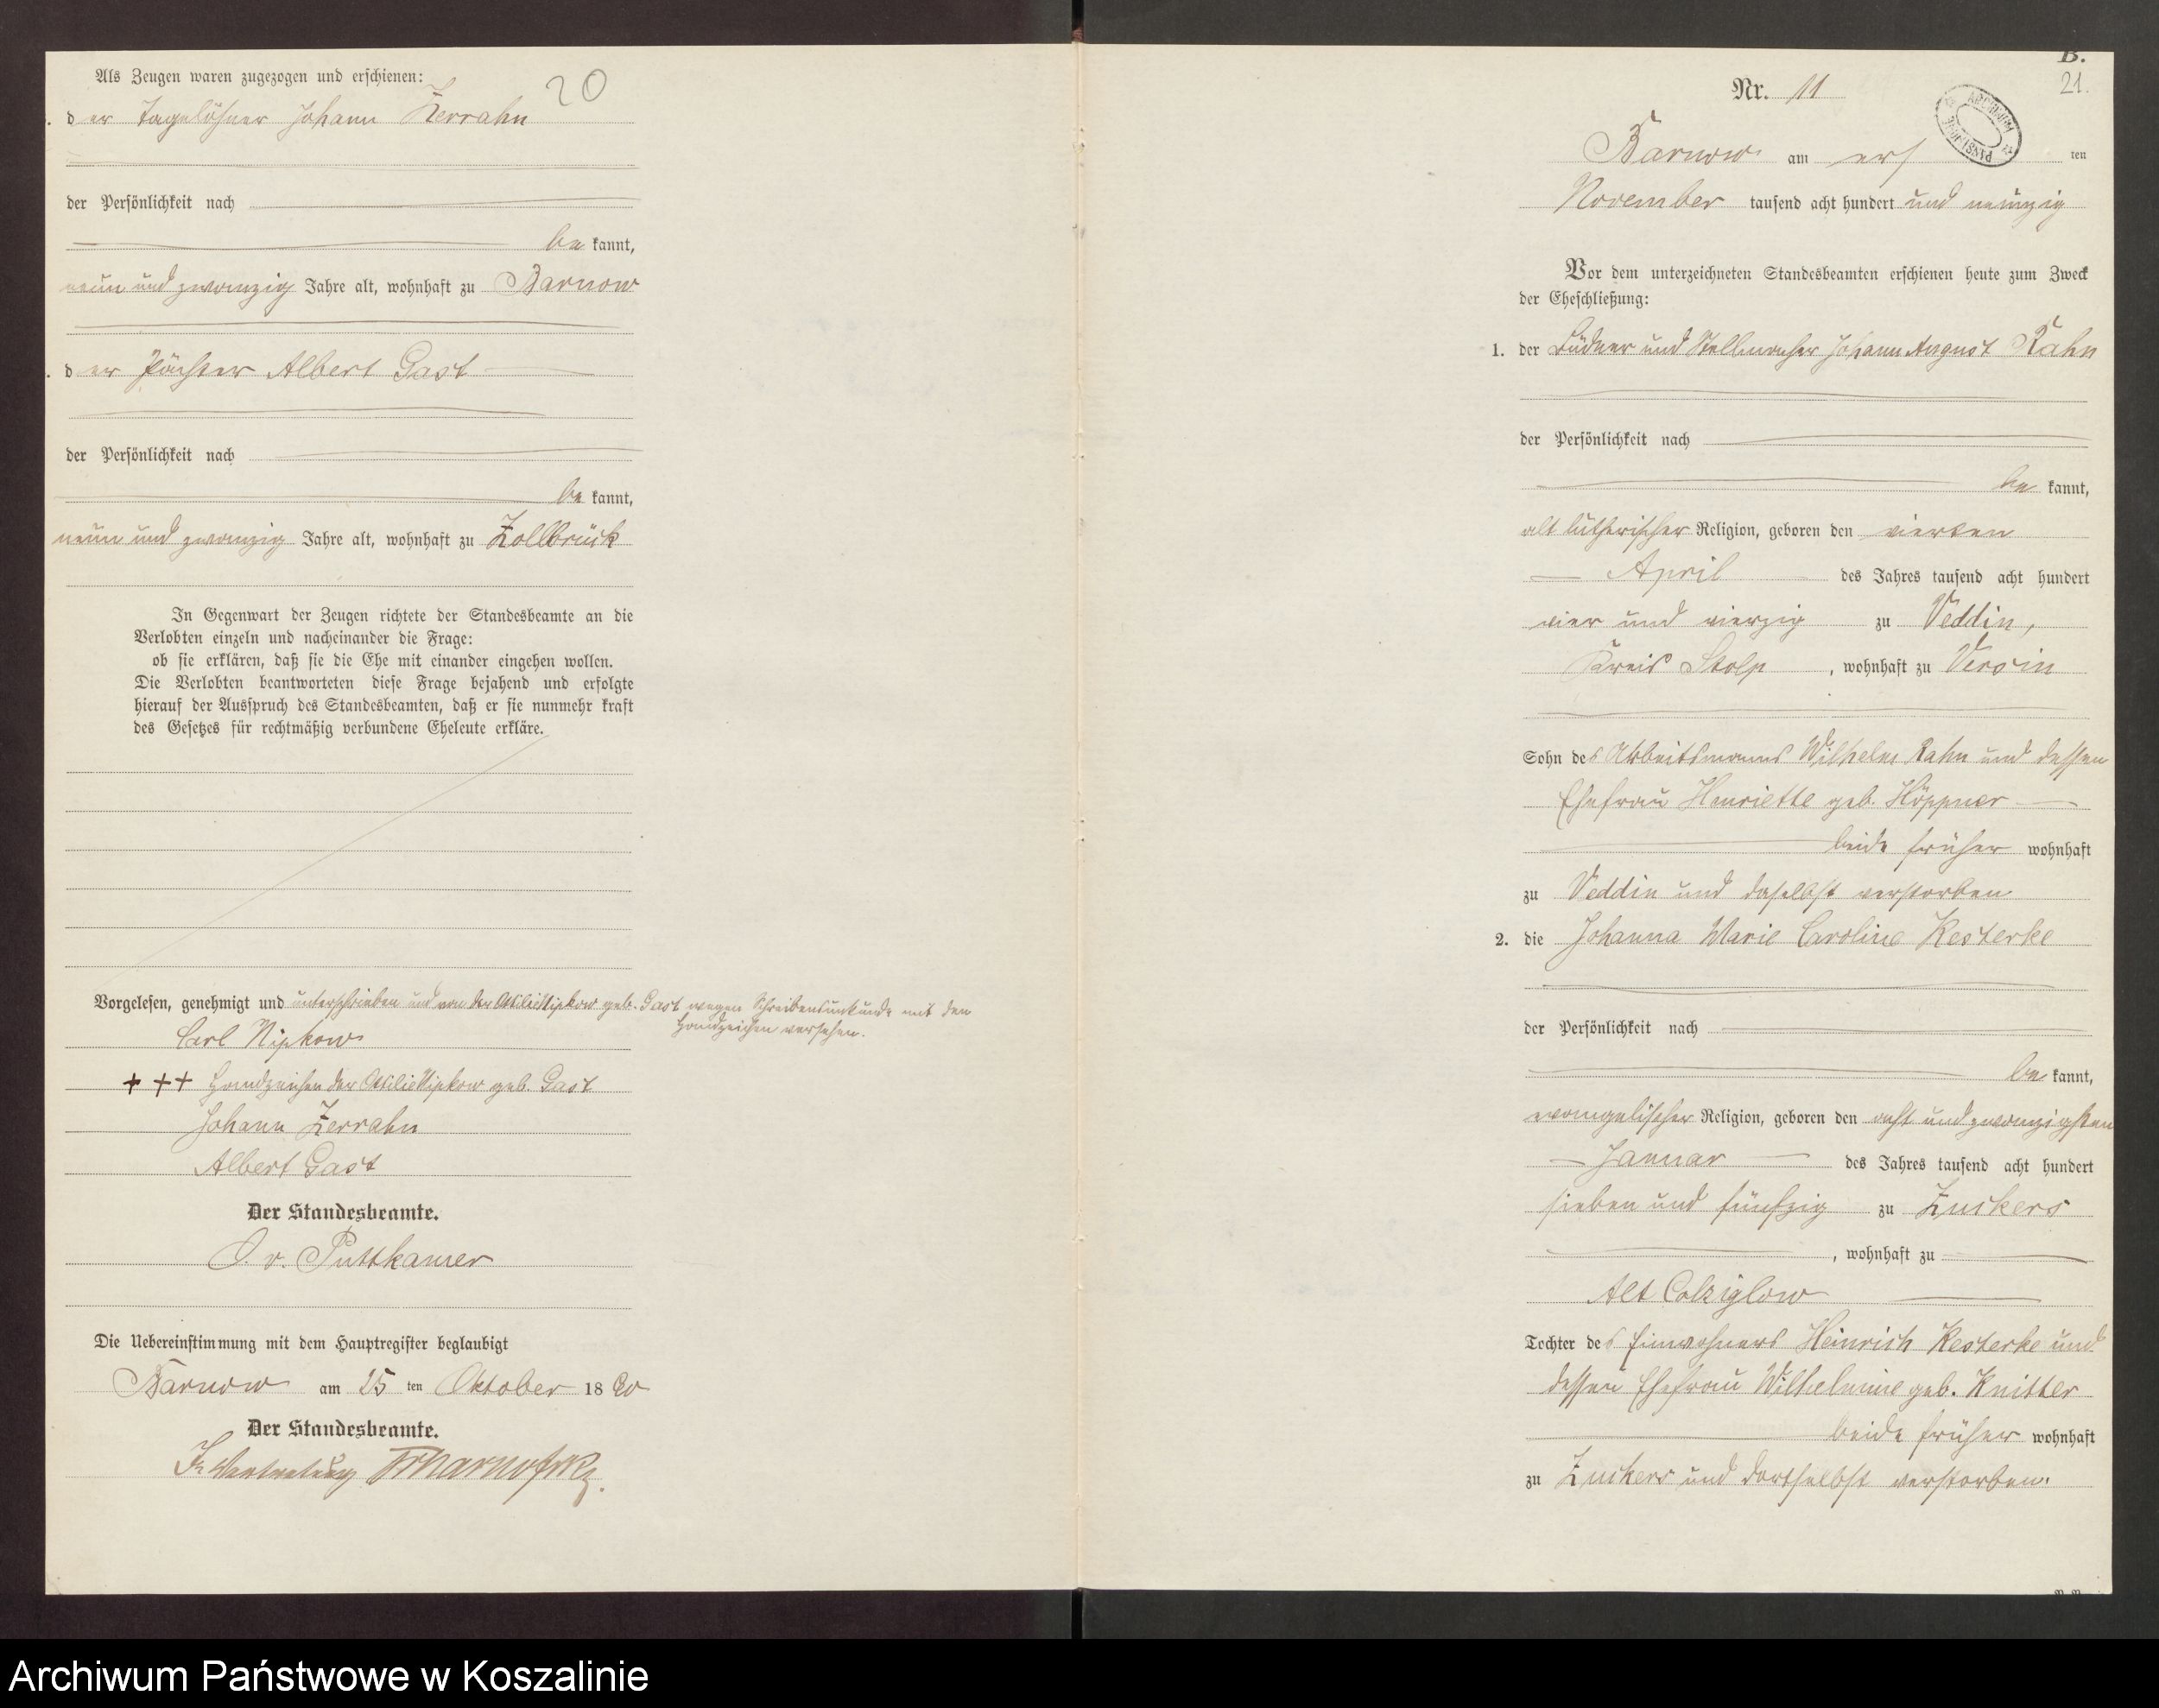 Als Zeugen waren zugezogen und erschienen:
20
der Tagelöhner Johann Zerrahn
der Persönlichkeit nach
be kannt,
neun und zwanzig Jahre alt, wohnhaft zu Barnow
der Pächter Albert Gast
der Persönlichkeit nach
be kannt,
neun und zwanzig Jahre alt, wohnhaft zu Zollbrück
In Gegenwart der Zeugen richtete der Standesbeamte an die
Verlobten einzeln und nacheinander die Frage:
ob sie erklären, daß sie die Ehe mit einander eingehen wollen.
Die Verlobten beantworteten diese Frage bejahend und erfolgte
hierauf der Ausspruch des Standesbeamten, daß er sie nunmehr kraft
des Gesetzes für rechtmäßig verbundene Eheleute erkläre.
Vorgelesen, genehmigt und unterschrieben und von der Ottilie Nipkow geb. Gast wegen Schreibensunkunde mit den
Handzeichen versehen.
Carl Nipkow
+ + + Handzeichen der Ottilie Nipkow geb. Gast
Johann Zerrahn
Albert Gast
Der Standesbeamte.
O. v. Puttkamer
Die Uebereinstimmung mit dem Hauptregister beglaubigt
Barnow am 25 ten Oktober 18 90
Der Standesbeamte.
In Vertretung
B.
21.
Nr. 11
ARCHIWUM PAŃSTWOWE
Barnow am ers ten
November tausend acht hundert und neunzig
Vor dem unterzeichneten Standesbeamten erschienen heute zum Zweck
der Eheschließung:
1. der Büdner und Stellmacher Johann August Rahn
der Persönlichkeit nach
be kannt,
alt lutherischer Religion, geboren den vierten
April des Jahres tausend acht hundert
vier und vierzig zu Veddin,
Kreis Stolp, wohnhaft zu Versin
Sohn des Arbeitsmanns Wilhelm Rahn und dessen
Ehefrau Henriette geb. Höppner
beide früher wohnhaft
zu Veddin und daselbst verstorben
2. die Johanna Marie Caroline Kesterke
der Persönlichkeit nach
be kannt,
evangelischer Religion, geboren den acht und zwanzigsten
Januar des Jahres tausend acht hundert
sieben und fünfzig zu Zuckers
, wohnhaft zu
Alt Colziglow
Tochter des Einwohners Heinrich Kesterke und
dessen Ehefrau Wilhelmine geb. Knitter
beide früher wohnhaft
zu Zuckers und dortselbst verstorben.
Archiwum Państwowe w Koszalinie